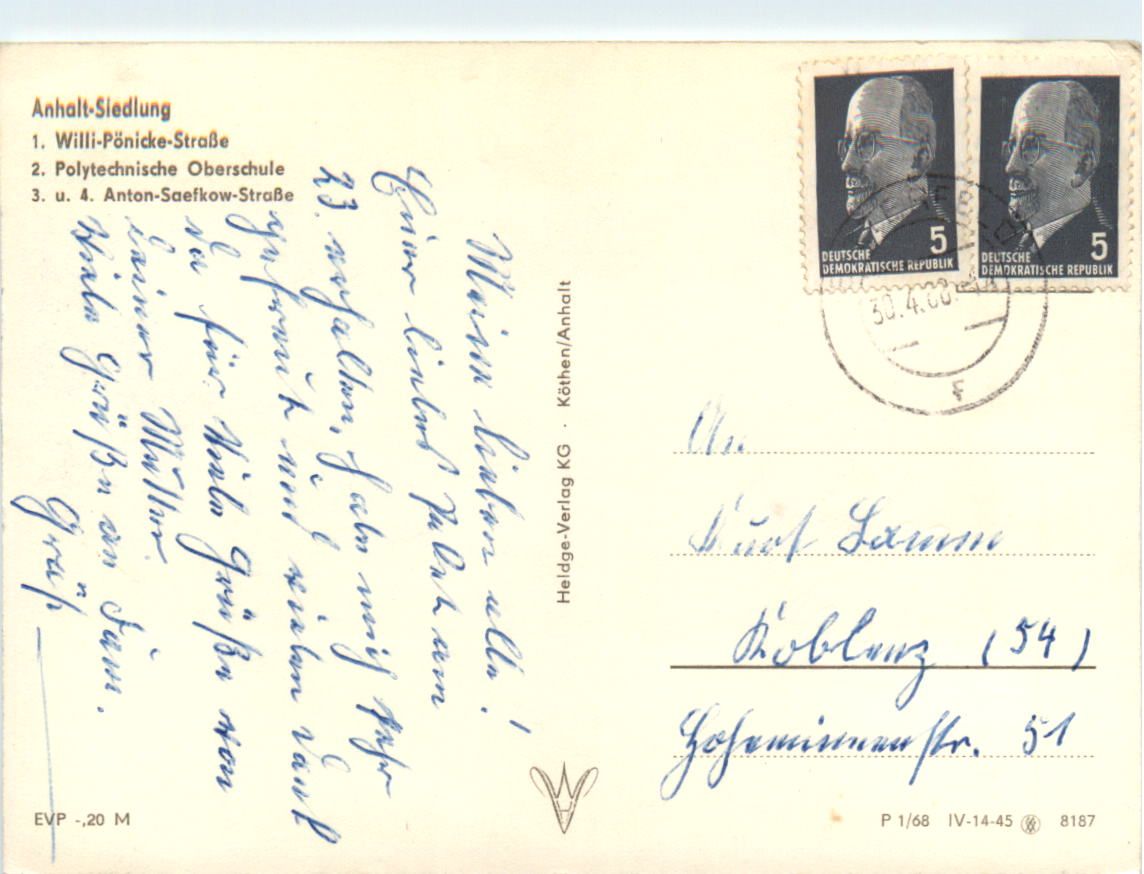 Anhalt-Siedlung
1. Willi-Pönicke-Straße
2. Polytechnische Oberschule
3. u. 4. Anton-Saefkow-Straße
Meine lieben alle!
Euer liebes Paket am
23. erhalten, habe mich sehr
gefreut und vielen Dank
da für Viele Grüße von
Deiner Mutter
Viele Grüße an Fam.
EVP -,20 M
Heldge-Verlag KG · Köthen/Anhalt
DEUTSCHE
DEMOKRATISCHE REPUBLIK
5
DEUTSCHE
DEMOKRATISCHE REPUBLIK
5
30.4.
An
Kurt Lamm
Koblenz (54)
51
P 1/68 IV-14-45 8187